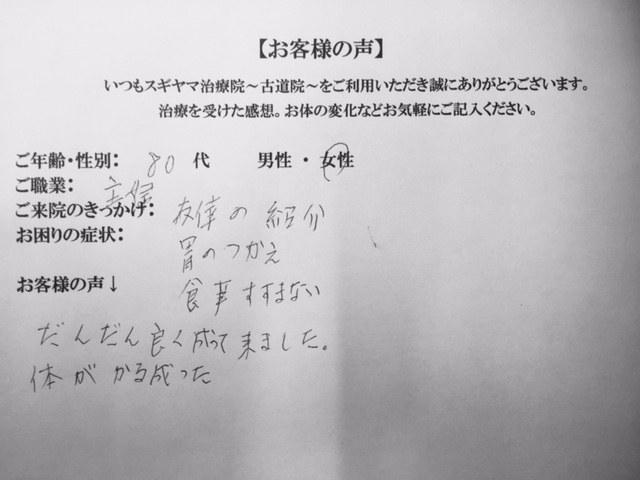 【お客様の声】
いつもスギヤマ治療院～古道院～をご利用いただき誠にありがとうございます。
治療を受けた感想。お体の変化などお気軽にご記入ください。
ご年齢・性別： 80 代 男性 ・ 女性
ご職業： 主婦
ご来院のきっかけ： 友達の紹介
お困りの症状： 胃のつかえ
食事すすまない
お客様の声↓
だんだん良く成って来ました。
体が かる成った